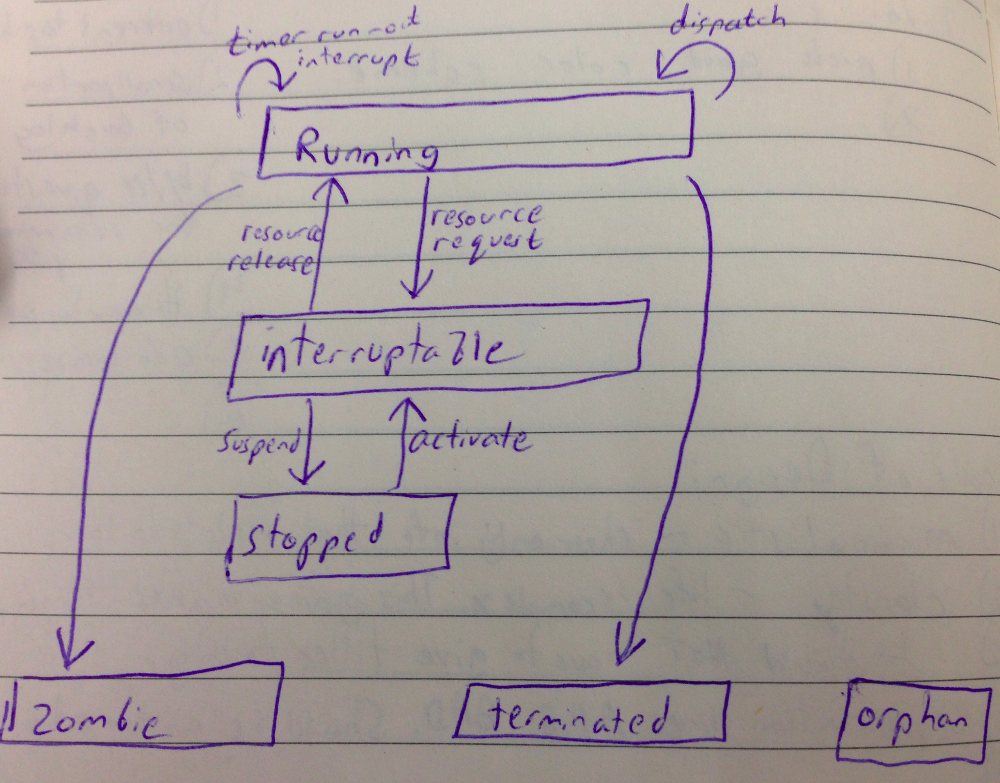 timer run-out
interrupt
dispatch
Running
resource
release
resource
request
interruptable
suspend
activate
stopped
zombie
terminated
orphan